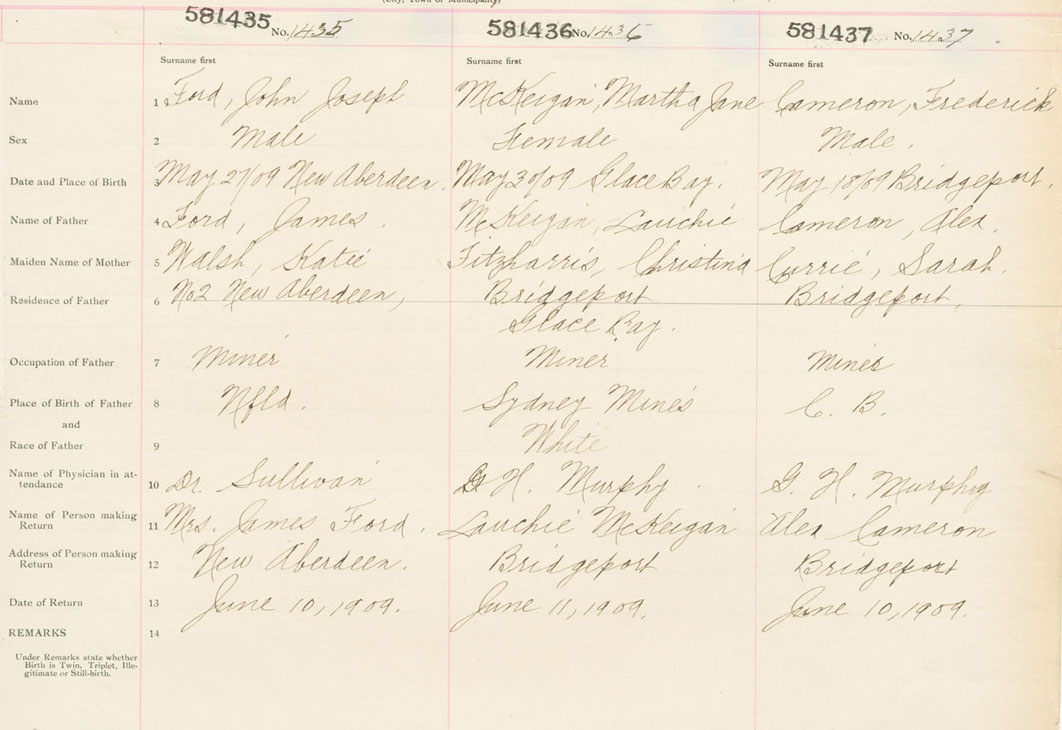 (City, Town or Municipality)
581435 No. 1435 581436 No. 1436 581437 No. 1437
Surname first Surname first Surname first
Name 1 Ford, John Joseph McKeigan, Martha Jane Cameron, Frederick
Sex 2 Male Female Male.
Date and Place of Birth 3 May 27/09 New Aberdeen. May 30/09 Glace Bay. May 18/09 Bridgeport.
Name of Father 4 Ford, James. McKeigan, Lauchie Cameron, Alex.
Maiden Name of Mother 5 Walsh, Katie Fitzharris, Christina Currie, Sarah.
Residence of Father 6 No2 New Aberdeen, Bridgeport Bridgeport,
Glace Bay.
Occupation of Father 7 Miner Miner Miner
Place of Birth of Father 8 Nfld. Sydney Mines C. B.
and
Race of Father 9 White
Name of Physician in at-
tendance 10 Dr. Sullivan G H. Murphy. G. H. Murphy
Name of Person making
Return 11 Mrs. James Ford. Lauchie McKeigan Alex Cameron
Address of Person making
Return 12 New Aberdeen. Bridgeport Bridgeport
Date of Return 13 June 10, 1909. June 11, 1909. June 10, 1909.
REMARKS 14
Under Remarks state whether
Birth is Twin, Triplet, Ille-
gitimate or Still-birth.